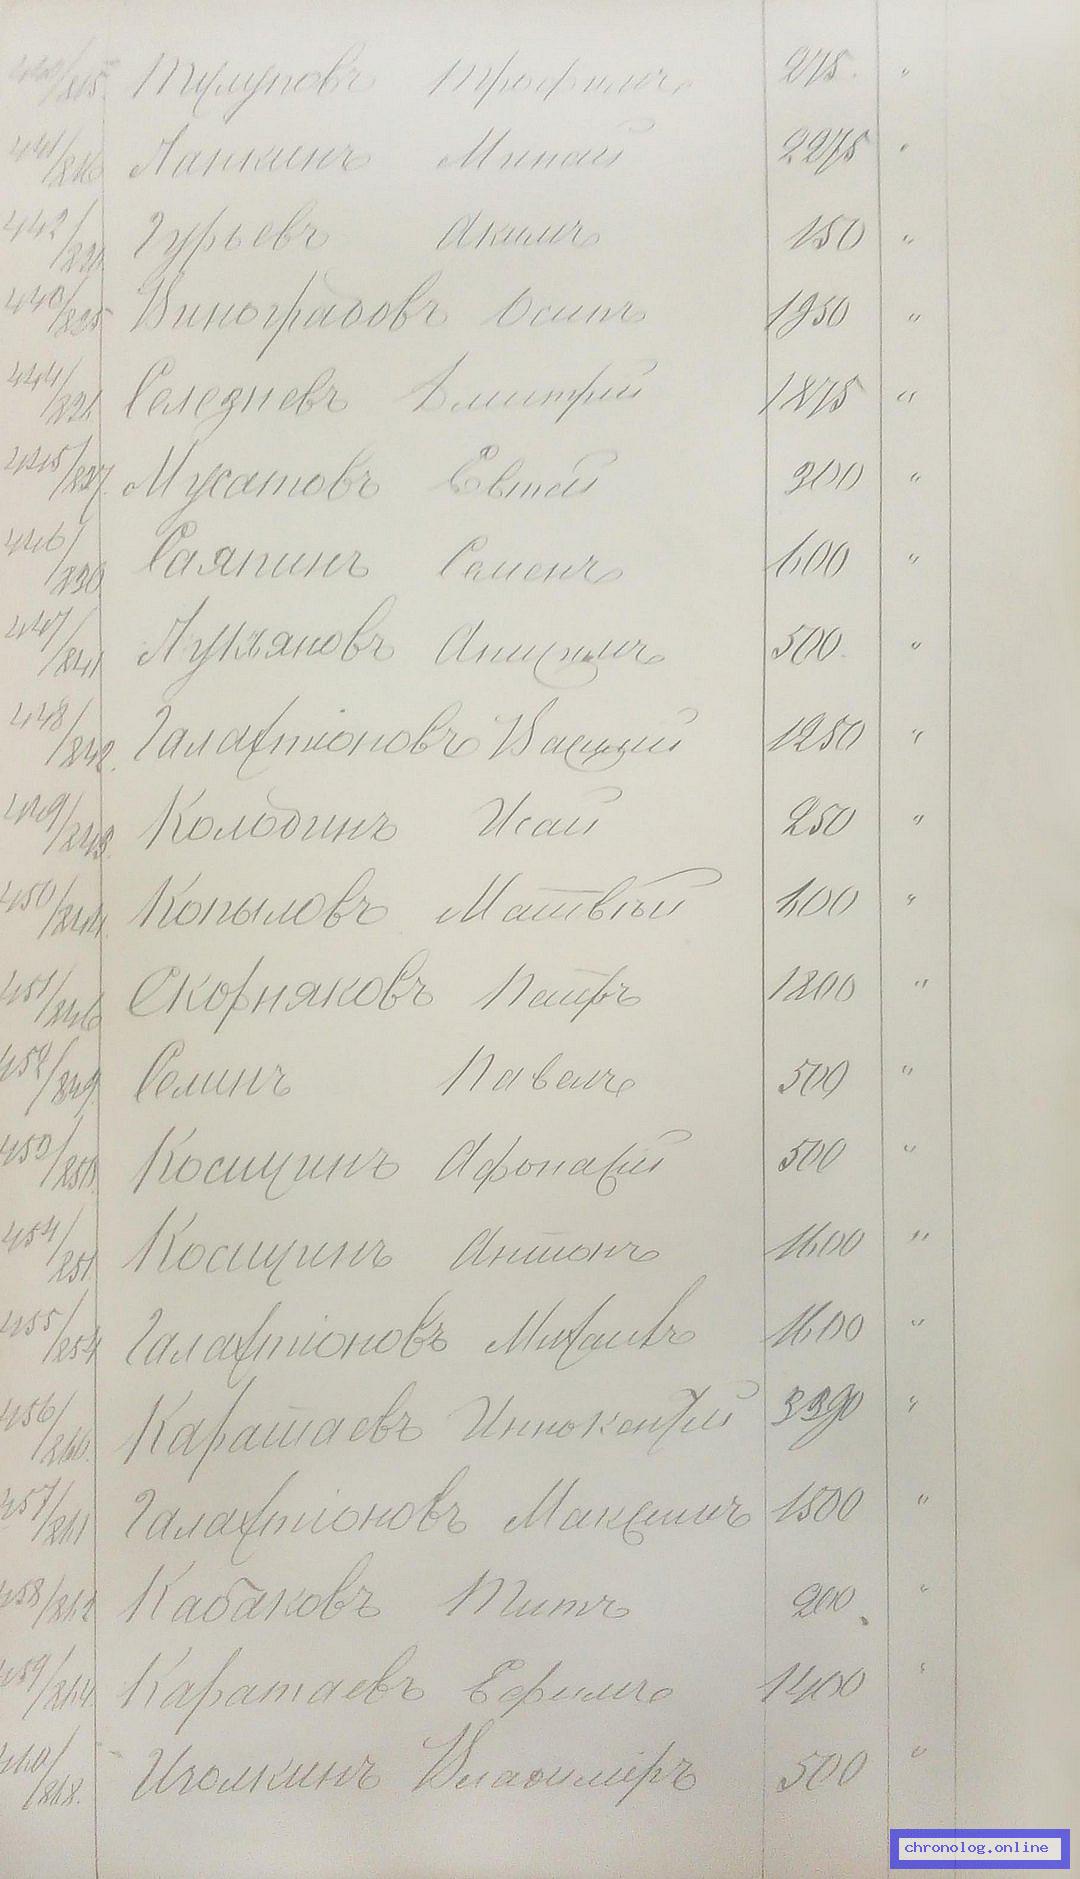 Тулуповъ Трофимъ 275 "
441/216 Лапкинъ Минай 2275 "
442/221 Гурьевъ Акимъ 150 "
Виноградовъ Осипъ 1950 "
444/221 Селезневъ Дмитрій 1875 "
445/227 Мусатовъ Евтей 300 "
446/230 Саяпинъ Семенъ 600 "
447/241 Лукъяновъ Анисимъ 500 "
448/242 Галактіоновъ Василий 1250 "
449/243 Колодинъ Исай 250 "
450/244 Копыловъ Матвѣй 600 "
451/246 Скорняковъ Петръ 1200 "
452/249 Селинъ Павелъ 500 "
453/250 Косицинъ Афонасий 500 "
454/251 Косицинъ Антонъ 1600 "
455/254 Галактіоновъ Михаилъ 1600 "
456/260 Каратаевъ Иннокентий "
457/261 Галактіоновъ Максимъ 1500 "
458/262 Кабаковъ Титъ 200 "
459/264 Каратаевъ Ефимъ 1400 "
460/268 Иголкинъ Владиміръ 500 "
chronolog.online